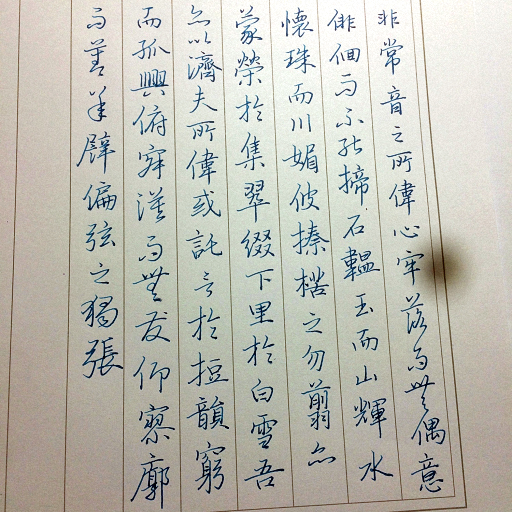 非常音之所偉心牢落而無偶意
俳佪而不能揥石韞玉而山輝水
懷珠而川媚彼榛楛之勿翦亦
蒙榮於集翠綴下里於白雪吾
亦以濟夫所偉或託言於短韻窮
而孤興俯寂漠而無友仰寥廓
而莫承譬偏弦之獨張